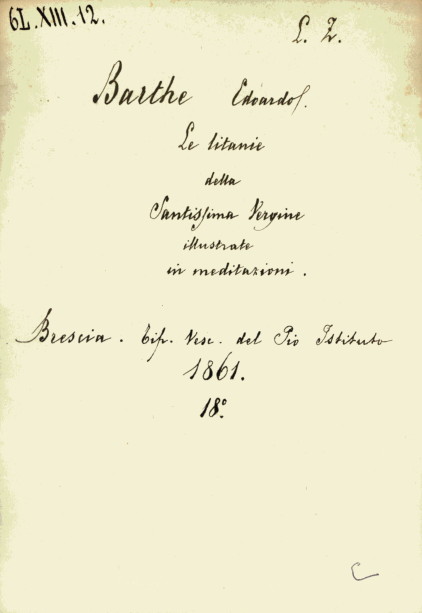 6L.XIII.12.
L. Z.
Barthe Edoardo.
Le litanie
della
Santissima Vergine
illustrate
in meditazioni.
Brescia. Tip. Vesc. del Pio Istituto
1861.
18°.
C